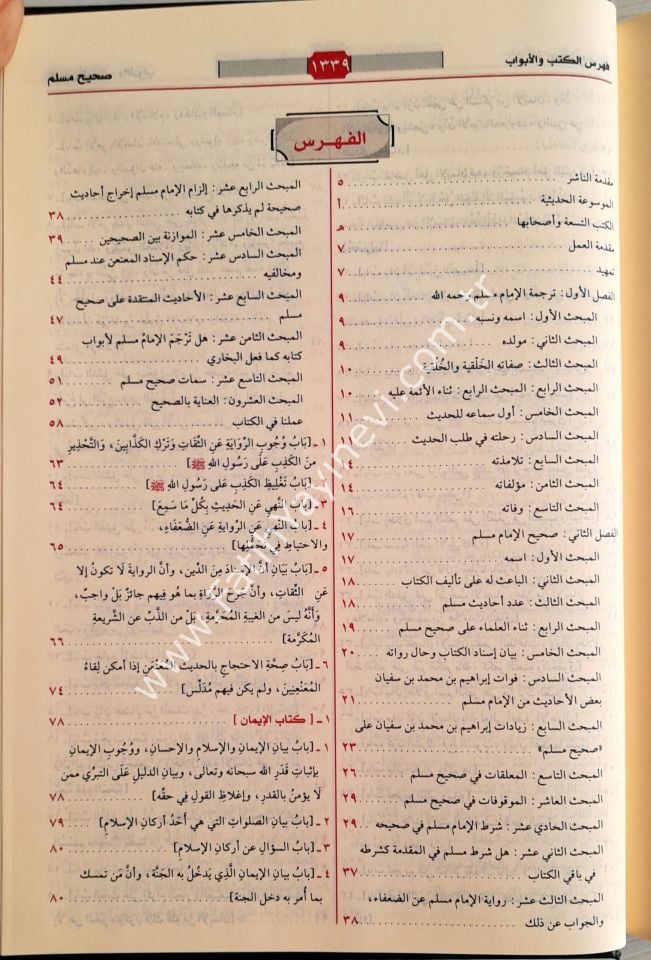 فهرس الكتب والأبواب
١٣٣٩
صحيح مسلم
الفهرس
مقدمة الناشر ٥
الموسوعة الحديثية أ
الكتب التسعة وأصحابها هـ
مقدمة العمل ٧
تمهيد ٧
الفصل الأول: ترجمة الإمام مسلم رحمه الله ٩
المبحث الأول: اسمه ونسبه ٩
المبحث الثاني: مولده ٩
المبحث الثالث: صفاته الخَلْقية والخُلُقية ١٠
المبحث الرابع: المبحث الرابع: ثناء الأئمة عليه ١٠
المبحث الخامس: أول سماعه للحديث ١١
المبحث السادس: رحلته في طلب الحديث ١١
المبحث السابع: تلامذته ١٤
المبحث الثامن: مؤلفاته ١٤
المبحث التاسع: وفاته ١٦
الفصل الثاني: صحيح الإمام مسلم ١٧
المبحث الأول: اسمه ١٧
المبحث الثاني: الباعث له على تأليف الكتاب ١٨
المبحث الثالث: عدد أحاديث مسلم ١٨
المبحث الرابع: ثناء العلماء على صحيح مسلم ١٩
المبحث الخامس: بيان إسناد الكتاب وحال رواته ٢٠
المبحث السادس: فوات إبراهيم بن محمد بن سفيان
بعض الأحاديث من الإمام مسلم ٢١
المبحث السابع: زيادات إبراهيم بن محمد بن سفيان على
«صحيح مسلم» ٢٣
المبحث التاسع: المعلقات في صحيح مسلم ٢٦
المبحث العاشر: الموقوفات في صحيح مسلم ٢٩
المبحث الحادي عشر: شرط الإمام مسلم في صحيحه ٢٩
المبحث الثاني عشر: هل شرط مسلم في المقدمة كشرطه
في باقي الكتاب ٣٧
المبحث الثالث عشر: رواية الإمام مسلم عن الضعفاء،
والجواب عن ذلك ٣٨
المبحث الرابع عشر: إلزام الإمام مسلم إخراج أحاديث
صحيحة لم يذكرها في كتابه ٣٨
المبحث الخامس عشر: الموازنة بين الصحيحين ٣٩
المبحث السادس عشر: حكم الإسناد المعنعن عند مسلم
ومخالفيه ٤٤
المبحث السابع عشر: الأحاديث المنتقدة على صحيح
مسلم ٤٧
المبحث الثامن عشر: هل تَرْجَمَ الإمامُ مسلم لأبواب
كتابه كما فعل البخاري ٤٩
المبحث التاسع عشر: سمات صحيح مسلم ٥١
المبحث العشرون: العناية بالصحيح ٥٢
عملنا في الكتاب ٥٨
١ ـ [بَابُ وُجُوبِ الرِّوَايَةِ عَنِ الثِّقَاتِ وَتَرْكِ الكَذَّابِينَ، وَالتَّحْذِيرِ
مِنَ الكَذِبِ عَلَى رَسُولِ اللهِ ﷺ] ٦٣
٢ ـ [بَابُ تَغْلِيظِ الكَذِبِ عَلَى رَسُولِ اللهِ ﷺ] ٦٤
٣ ـ [بابُ النَّهْيِ عَنِ الحَدِيثِ بِكُلِّ مَا سَمِعَ] ٦٤
٤ ـ [بابُ النَّهْيِ عَنِ الرِّوايةِ عَنِ الضُّعَفَاءِ،
والاحتياطِ في تَحَمُّلِها] ٦٥
٥ ـ [بَابُ بيَانِ أنَّ الإسنادَ مِنَ الدِّينِ، وأنَّ الروايةَ لَا تكونُ إلا
عَنِ الثِّقاتِ، وأنَّ جَرْحَ الرُّواةِ بِما هُو فيهِم جائزٌ بَلْ واجبٌ،
وَأَنَّهُ ليسَ من الغيبةِ المُحَرَّمةِ، بَلْ من الذَّبِّ عن الشَّريعةِ
المُكَرَّمةِ] ٦٦
٦ ـ [بَابُ صِحَّةِ الاحتجاجِ بالحديثِ المُعَنْعَنِ إذا أمكن لِقاءُ
المُعَنْعِنِينَ، ولم يكن فيهم مُدَلِّسٌ] ٧٤
١ ـ [ كتاب الإيمان ] ٧٨
١ ـ [بابُ بيانِ الإيمانِ والإسلامِ والإحسانِ، ووُجُوبِ الإيمانِ
بإثباتِ قَدَرِ الله سبحانه وتعالى، وبيانِ الدليلِ عَلَى التبرِّي ممن
لَا يؤمنُ بالقدرِ، وإغلاظِ القولِ في حقِّه] ٧٨
٢ ـ [بابُ بيانِ الصلواتِ التي هي أَحَدُ أركانِ الإسلامِ] ٧٩
٣ ـ [بابُ السؤالِ عن أركانِ الإسلامِ] ٨٠
٤ ـ [بابُ بيانِ الإيمانِ الَّذي يَدخُلُ به الجَنَّة، وأنَّ مَن تمسك
بما أُمر به دخل الجنة] ٨٠
www.fatihyayinevi.com.tr